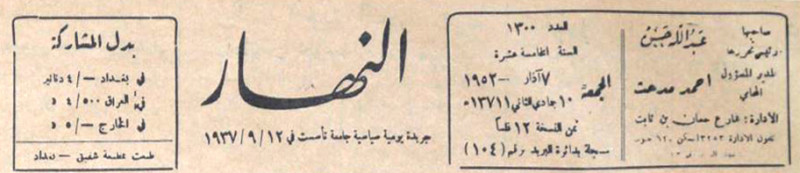 صاحبها
ورئيس تحريرها
عبد الله حسن
المدير المسؤول
المحامي
احمد مدحت
الادارة: شارع حسان بن ثابت
تلفون الادارة
العدد ١٣٠٠
السنة الخامسة عشرة
الجمعة
٧ آذار — ١٩٥٢
١٠ جمادي الثاني ١٣٧١ هـ
ثمن النسخة ١٢ فلساً
مسجلة بدائرة البريد برقم (١٠٤)
النهار
جريدة يومية سياسية جامعة تأسست في ١٢/٩/١٩٣٧
بدل المشاركة
في بغداد —/٤ دنانير
في العراق ٤/٥٠٠ د
في الخارج —/٥ د
طبعت بمطبعة شفيق — بغداد